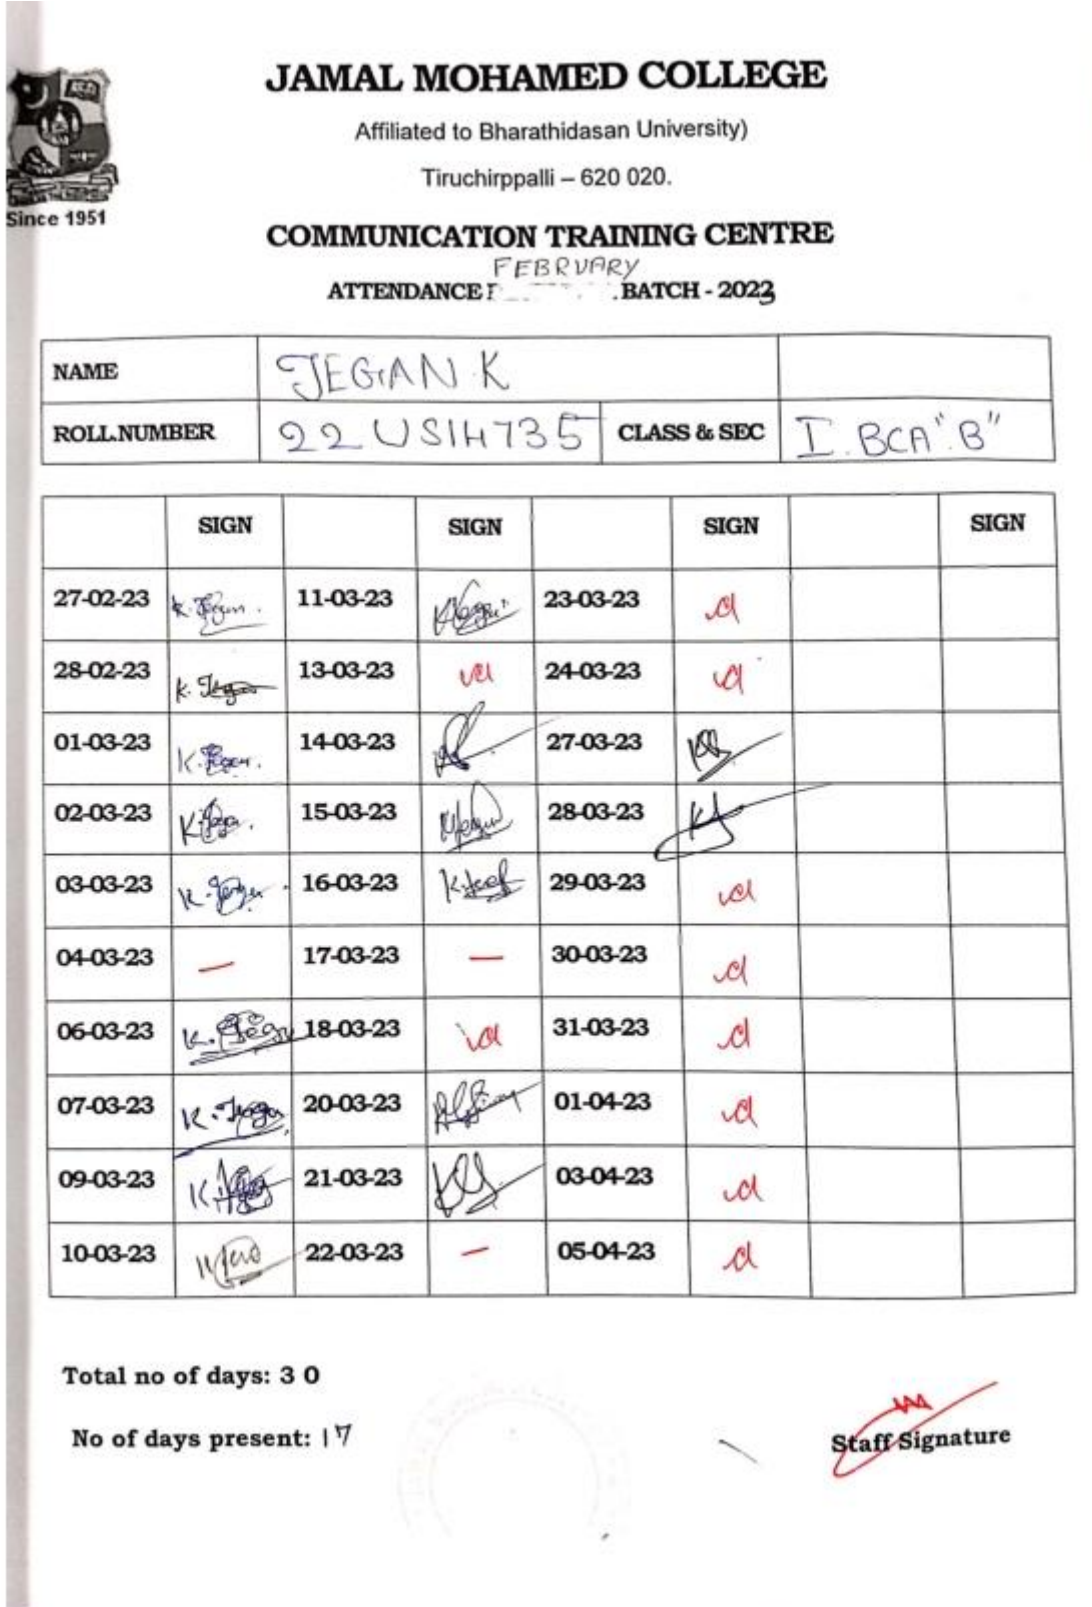 JAMAL MOHAMED COLLEGE
Affiliated to Bharathidasan University)
Tiruchirppalli – 620 020.
Since 1951
COMMUNICATION TRAINING CENTRE
FEBRUARY
ATTENDANCE BATCH - 2023
NAME JEGAN.K
ROLL.NUMBER 22USI4735 CLASS & SEC I. BCA "B"
SIGN SIGN SIGN SIGN
27-02-23 K. Jegan. 11-03-23 23-03-23 a
28-02-23 K. Jegan 13-03-23 a 24-03-23 a
01-03-23 K. Jegan. 14-03-23 27-03-23
02-03-23 K. Jegan. 15-03-23 28-03-23 KJ
03-03-23 K. Jegan 16-03-23 29-03-23 a
04-03-23 — 17-03-23 — 30-03-23 a
06-03-23 K. Jegan 18-03-23 a 31-03-23 a
07-03-23 K. Jegan 20-03-23 01-04-23 a
09-03-23 21-03-23 03-04-23 a
10-03-23 22-03-23 — 05-04-23 a
Total no of days: 30
No of days present: 17
Staff Signature